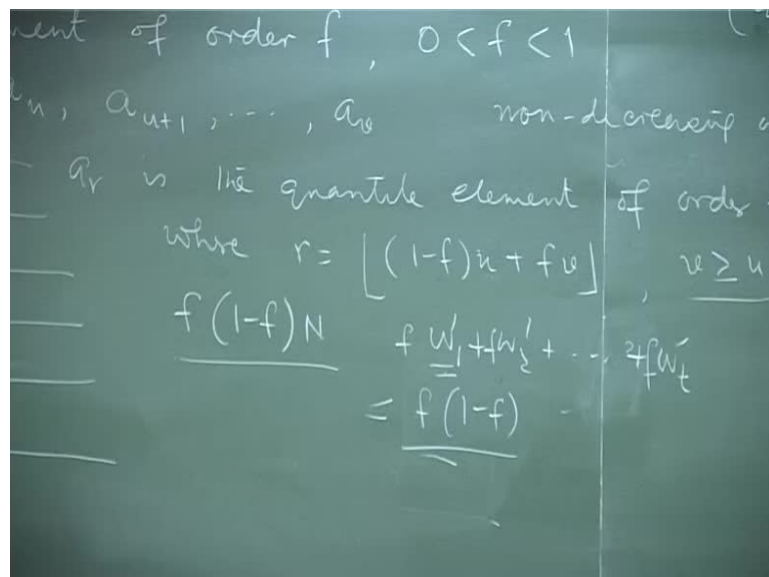 ment of order f, 0 < f < 1
a_u, a_{u+1}, ..., a_v non-decreasing
a_r is the quantile element of order
where r = ⌊(1-f)u + fv⌋, v ≥ u
f(1-f)N f W_1' + fW_2' + ... + fW_t'
≤ f(1-f)